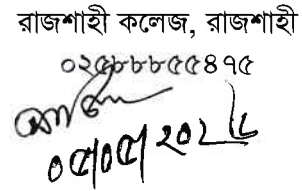 রাজশাহী কলেজ, রাজশাহী
০২৫৮৮৮৫৫৪৭৫
০৫/০৫/২০২৫